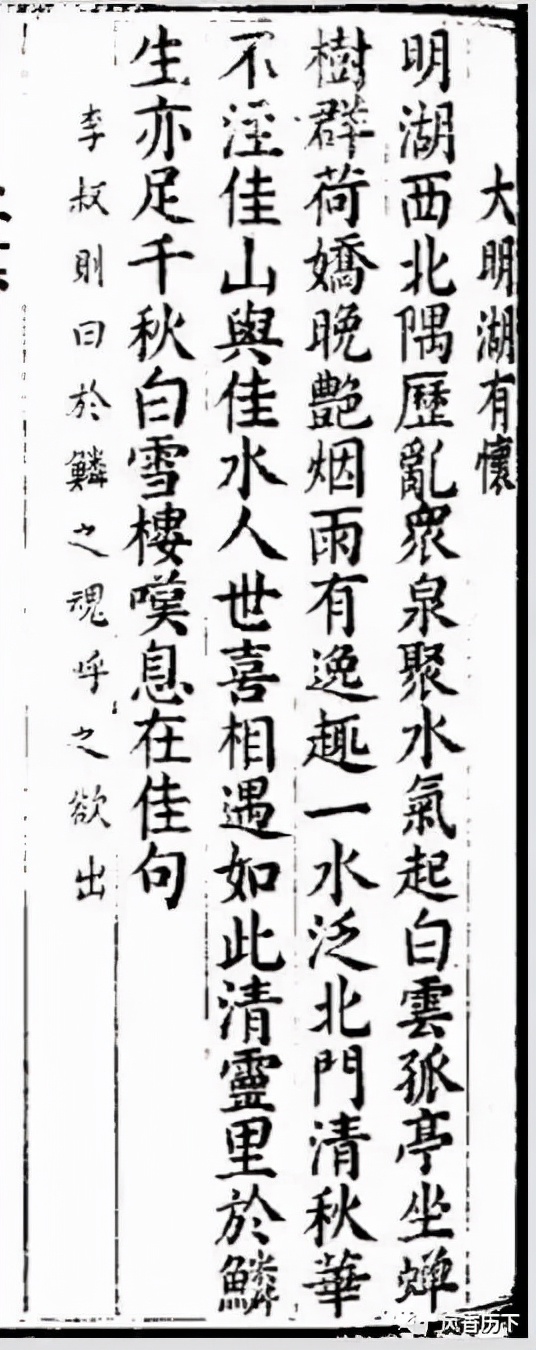 大明湖有懷
明湖西北隅歷亂衆泉聚水氣起白雲孤亭坐蟬
樹群荷嬌晚艷烟雨有逸趣一水泛北門清秋華
不淫佳山與佳水人世喜相遇如此清靈里於鱗
生亦足千秋白雪樓嘆息在佳句
李叔則曰於鱗之魂呼之欲出
风吾历下